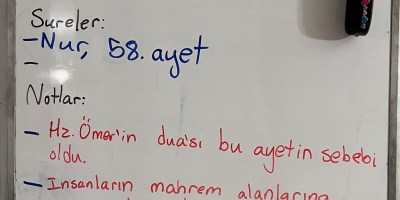 Sureler:
- Nur, 58. ayet
-
Notlar:
- Hz. Ömer'in dua'sı bu ayetin sebebi
oldu.
- İnsanların mahrem alanlarına